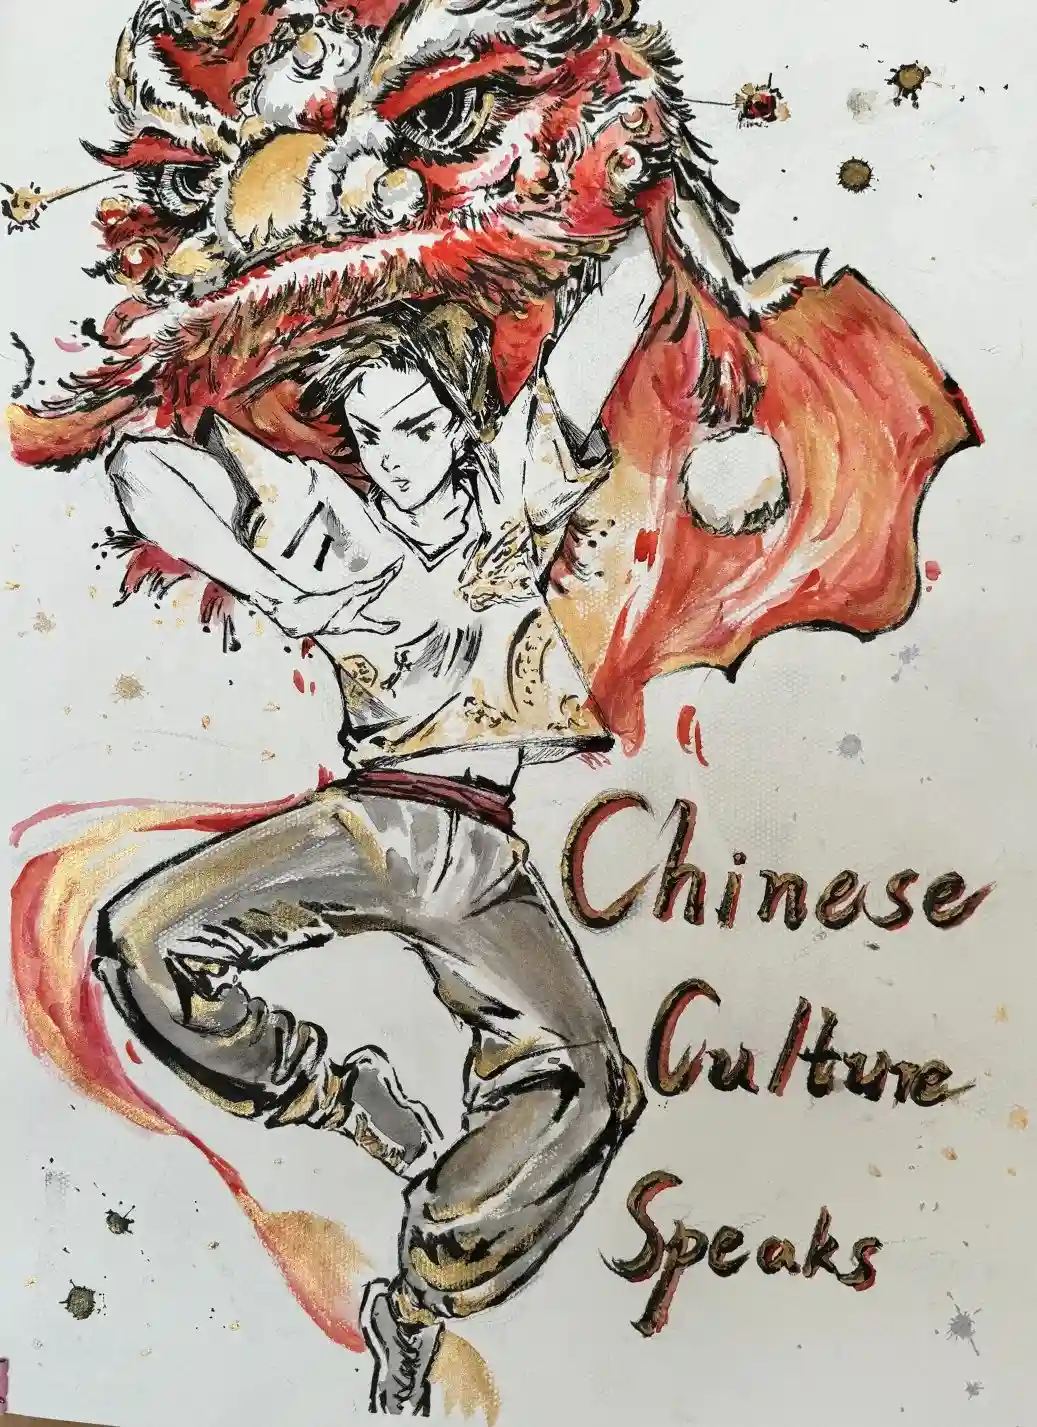 Chinese
Culture
Speaks